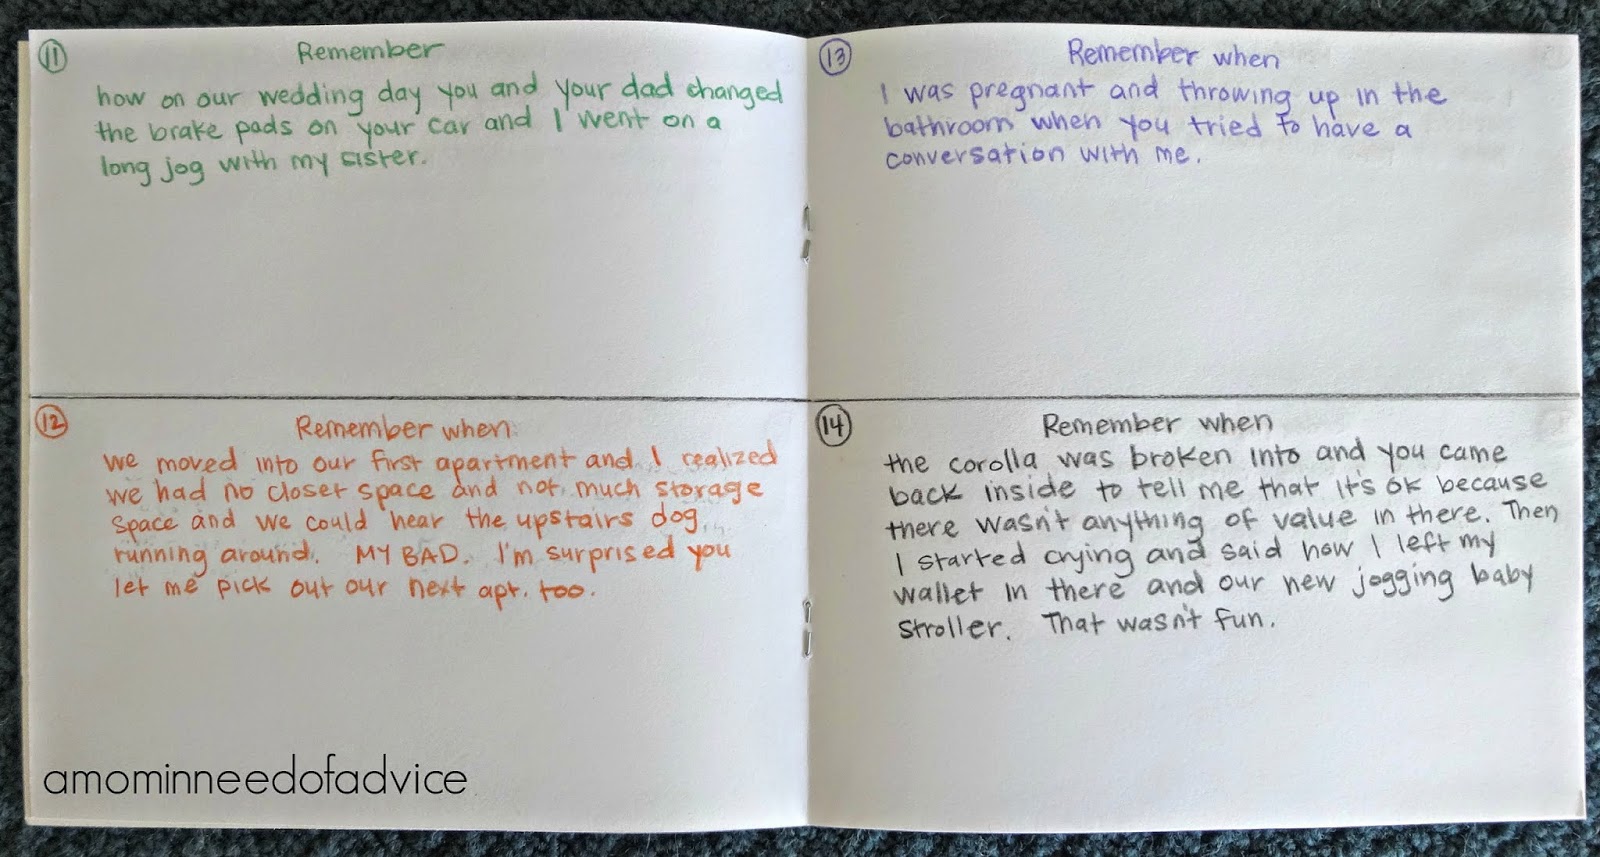 11
Remember
how on our wedding day you and your dad changed
the brake pads on your car and I went on a
long jog with my sister.
12
Remember when
we moved into our first apartment and I realized
we had no closet space and not much storage
space and we could hear the upstairs dog
running around. MY BAD. I'm surprised you
let me pick out our next apt. too.
13
Remember when
I was pregnant and throwing up in the
bathroom when you tried to have a
conversation with me.
14
Remember when
the corolla was broken into and you came
back inside to tell me that it's ok because
there wasn't anything of value in there. Then
I started crying and said how I left my
wallet in there and our new jogging baby
stroller. That wasn't fun.
amominneedofadvice